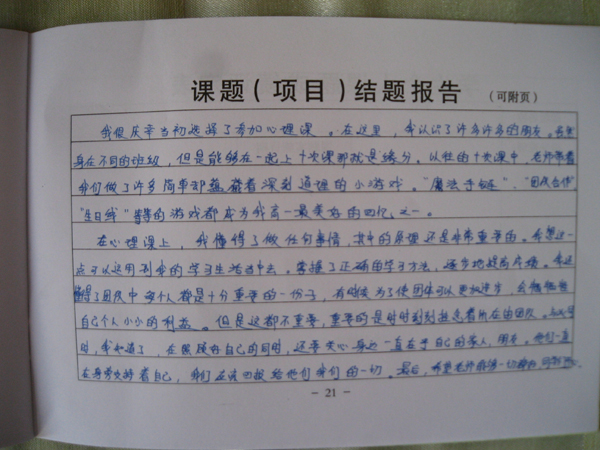 课题（项目）结题报告 （可附页）
我很庆幸当初选择了参加心理课。在这里，我认识了许多许多的朋友。虽然
身在不同的班级，但是能够在一起上十次课那就是缘分。以往的十次课中，老师带着
我们做了许多简单却蕴含着深刻道理的小游戏。"魔法手链"、"团队合作"
"生日线"等等的游戏都成为我高一最美好的回忆之一。
在心理课上，我懂得了做任何事情，其中的原理还是非常重要的。我想这一
点可以运用到我的学习生活当中去，掌握了正确的学习方法，逐步地提高成绩。我还
懂得了团队中每个人都是十分重要的一份子，有时候为了使团体可以更快进步，会牺牲
自己个人小小的利益。但是这都不重要，重要的是时时刻刻想着所在的团队。与此同
时，我知道了，在照顾好自己的同时，还要关心身边一直在乎自己的家人，朋友。他们一直
在身旁支持着自己，我们应该回报给他们我们的一切。最后，希望老师的
- 21 -